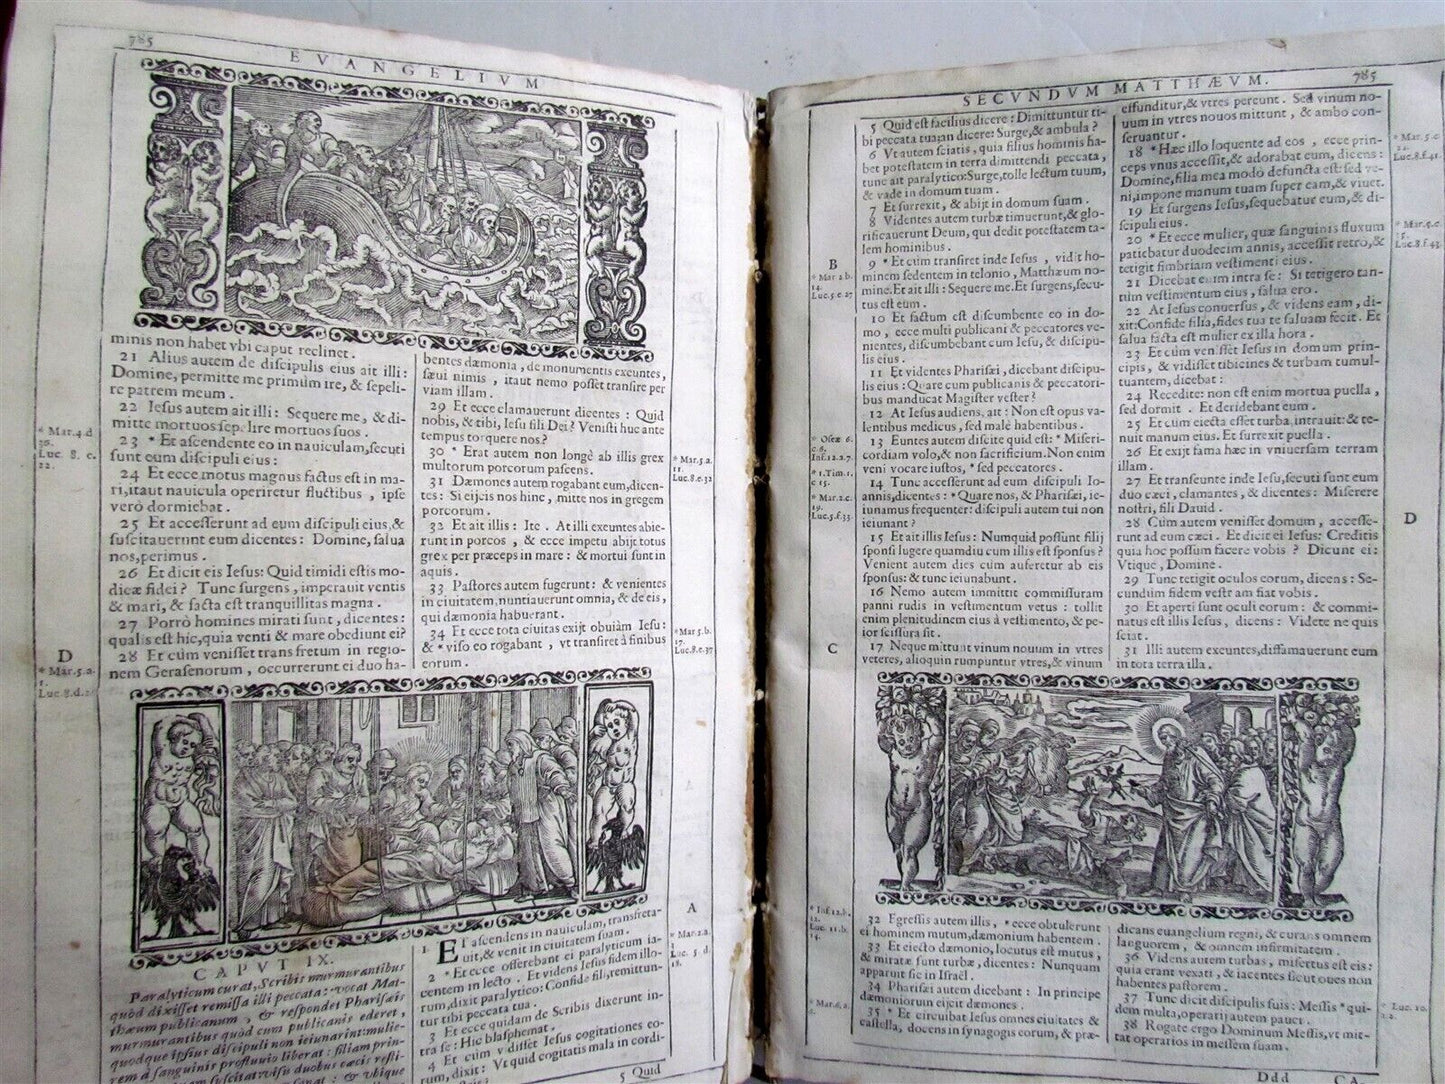 785
EVANGELIVM
minis non habet vbi caput reclinet.
21 Alius autem de discipulis eius ait illi:
Domine, permitte me primùm ire, & sepeli-
re patrem meum.
22 Iesus autem ait illi: Sequere me, & di-
mitte mortuos sepelire mortuos suos.
23 * Et ascendente eo in nauiculam, secuti
sunt eum discipuli eius:
24 Et ecce motus magnus factus est in ma-
ri, itaut nauicula operiretur fluctibus, ipse
verò dormiebat.
25 Et accesserunt ad eum discipuli eius, &
suscitauerunt eum dicentes: Domine, salua
nos, perimus.
26 Et dicit eis Iesus: Quid timidi estis mo-
dicæ fidei? Tunc surgens, imperauit ventis
& mari, & facta est tranquillitas magna.
27 Porrò homines mirati sunt, dicentes:
qualis est hic, quia venti & mare obediunt ei?
28 Et cùm venisset trans fretum in regio-
nem Gerasenorum, occurrerunt ei duo ha-
* Mar.4.d
36.
Luc. 8. c.
22.
D
* Mar.5.a.
1.
Luc.8.d.26
bentes dæmonia, de monumentis exeuntes,
sæui nimis, itaut nemo posset transire per
viam illam.
29 Et ecce clamauerunt dicentes: Quid
nobis, & tibi, Iesu fili Dei? Venisti huc ante
tempus torquere nos?
30 * Erat autem non longè ab illis grex
multorum porcorum pascens.
31 Dæmones autem rogabant eum, dicen-
tes: Si eijcis nos hinc, mitte nos in gregem
porcorum.
32 Et ait illis: Ite. At illi exeuntes abie-
runt in porcos, & ecce impetu abijt totus
grex per præceps in mare: & mortui sunt in
aquis.
33 Pastores autem fugerunt: & venientes
in ciuitatem, nuntiauerunt omnia, & de eis,
qui dæmonia habuerant.
34 Et ecce tota ciuitas exijt obuiàm Iesu:
& * viso eo rogabant, vt transiret à finibus
eorum.
* Mar.5.a.
11.
Luc.8.e.32
*Mar.5.b.
17.
Luc.8.e.37
CAPVT IX.
Paralyticum curat, Scribis murmurantibus
quòd dixisset remissa illi peccata: vocat Mat-
thæum publicanum, & respondet Pharisæis
murmurantibus quòd cum publicanis ederet,
quodque ipsius discipuli non ieiunarint: mulie-
rem à sanguinis profluuio liberat: filiam prin-
suscitat: visu duobus cæcis resti-
& vbique
1 ET ascendens in nauiculam, transfreta-
uit, & venit in ciuitatem suam.
2 * Et ecce offerebant ei paralyticum ia-
centem in lecto. Et videns Iesus fidem illo-
rum, dixit paralytico: Confide fili, remittun-
tur tibi peccata tua.
3 Et ecce quidam de Scribis dixerunt in-
tra se: Hic blasphemat.
4 Et cùm vidisset Iesus cogitationes eo-
rum, dixit: Vt quid cogitatis mala in cordi-
5 Quid
A
* Mar.2.a.
3
Luc. 5. d.
18.
SECVNDVM MATTHÆVM.
785
5 Quid est facilius dicere: Dimittuntur ti-
bi peccata tua; an dicere: Surge, & ambula?
6 Vt autem sciatis, quia filius hominis ha-
bet potestatem in terra dimittendi peccata,
tunc ait paralytico: Surge, tolle lectum tuum,
& vade in domum tuam.
7 Et surrexit, & abijt in domum suam.
8 Videntes autem turbæ timuerunt, & glo-
rificauerunt Deum, qui dedit potestatem ta-
lem hominibus.
9 * Et cùm transiret inde Iesus, vidit ho-
minem sedentem in telonio, Matthæum no-
mine. Et ait illi: Sequere me. Et surgens, secu-
tus est eum.
10 Et factum est discumbente eo in do-
mo, ecce multi publicani & peccatores ve-
nientes, discumbebant cum Iesu, & discipu-
lis eius.
11 Et videntes Pharisæi, dicebant discipu-
lis eius: Quare cum publicanis & peccatori-
bus manducat Magister vester?
12 At Iesus audiens, ait: Non est opus va-
lentibus medicus, sed malè habentibus.
13 Euntes autem discite quid est: * Miseri-
cordiam volo, & non sacrificium. Non enim
veni vocare iustos, * sed peccatores.
14 Tunc accesserunt ad eum discipuli Io-
annis, dicentes: * Quare nos, & Pharisæi, ie-
iunamus frequenter: discipuli autem tui non
ieiunant?
15 Et ait illis Iesus: Numquid possunt filij
sponsi lugere quamdiu cum illis est sponsus?
Venient autem dies cùm auferetur ab eis
sponsus: & tunc ieiunabunt.
16 Nemo autem immittit commissuram
panni rudis in vestimentum vetus: tollit
enim plenitudinem eius à vestimento, & pe-
ior scissura fit.
17 Neque mittunt vinum nouum in vtres
veteres, alioquin rumpuntur vtres, & vinum
B
* Mar 2.b.
14.
Luc.5.e.27
* Oseæ 6.
c.6.
Inf.12.a.7.
* 1.Tim.1.
c 15.
* Mar.2.c.
19.
Luc.5.f.33.
C
effunditur, & vtres pereunt. Sed vinum no-
uum in vtres nouos mittunt, & ambo con-
seruantur.
18 * Hæc illo loquente ad eos, ecce prin-
ceps vnus accessit, & adorabat eum, dicens:
Domine, filia mea modò defuncta est: sed ve-
ni, impone manum tuam super eam, & viuet.
19 Et surgens Iesus, sequebatur eum, & di-
scipuli eius.
20 * Et ecce mulier, quæ sanguinis fluxum
patiebatur duodecim annis, accessit retrò, &
tetigit fimbriam vestimenti eius.
21 Dicebat enim intra se: Si tetigero tan-
tùm vestimentum eius, salua ero.
22 At Iesus conuersus, & videns eam, di-
xit: Confide filia, fides tua te saluam fecit. Et
salua facta est mulier ex illa hora.
23 Et cùm venisset Iesus in domum prin-
cipis, & vidisset tibicines & turbam tumul-
tuantem, dicebat:
24 Recedite: non est enim mortua puella,
sed dormit. Et deridebant eum.
25 Et cùm eiecta esset turba, intrauit: & te-
nuit manum eius. Et surrexit puella.
26 Et exijt fama hæc in vniuersam terram
illam.
27 Et transeunte inde Iesu, secuti sunt eum
duo cæci, clamantes, & dicentes: Miserere
nostri, fili Dauid.
28 Cùm autem venisset domum, accesse-
runt ad eum cæci. Et dicit ei Iesus: Creditis
quia hoc possum facere vobis? Dicunt ei:
Vtique, Domine.
29 Tunc tetigit oculos eorum, dicens: Se-
cundùm fidem vestram fiat vobis.
30 Et aperti sunt oculi eorum: & commi-
natus est illis Iesus, dicens: Videte ne quis
sciat.
31 Illi autem exeuntes, diffamauerunt eum
in tota terra illa.
* Mar.5.c
22.
Luc.8.f.41.
* Mar.5.c.
25.
Luc.8.f.43.
D
32 Egressis autem illis, * ecce obtulerunt
ei hominem mutum, dæmonium habentem.
33 Et eiecto dæmonio, locutus est mutus,
& miratæ sunt turbæ, dicentes: Nunquam
apparuit sic in Israël.
34 Pharisæi autem dicebant: In principe
dæmoniorum eijcit dæmones.
35 * Et circuibat Iesus omnes ciuitates &
castella, docens in synagogis eorum, & præ-
* Inf.12.b.
22.
Luc.11.b.
14.
* Mar.6.a.
6.
dicans euangelium regni, & curans omnem
languorem, & omnem infirmitatem.
36 Videns autem turbas, misertus est eis:
quia erant vexati, & iacentes sicut oues non
habentes pastorem.
37 Tunc dicit discipulis suis: Messis * qui-
dem multa, operarij autem pauci.
38 Rogate ergo Dominum Messis, vt mit-
tat operarios in messem suam.
* Luc. 10.
1.2.
Ddd CA-